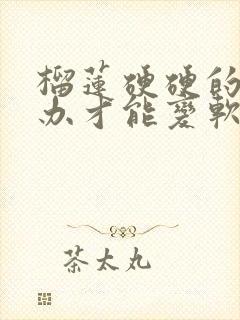 榴蓮硬硬的
办才能變軟
茶太丸